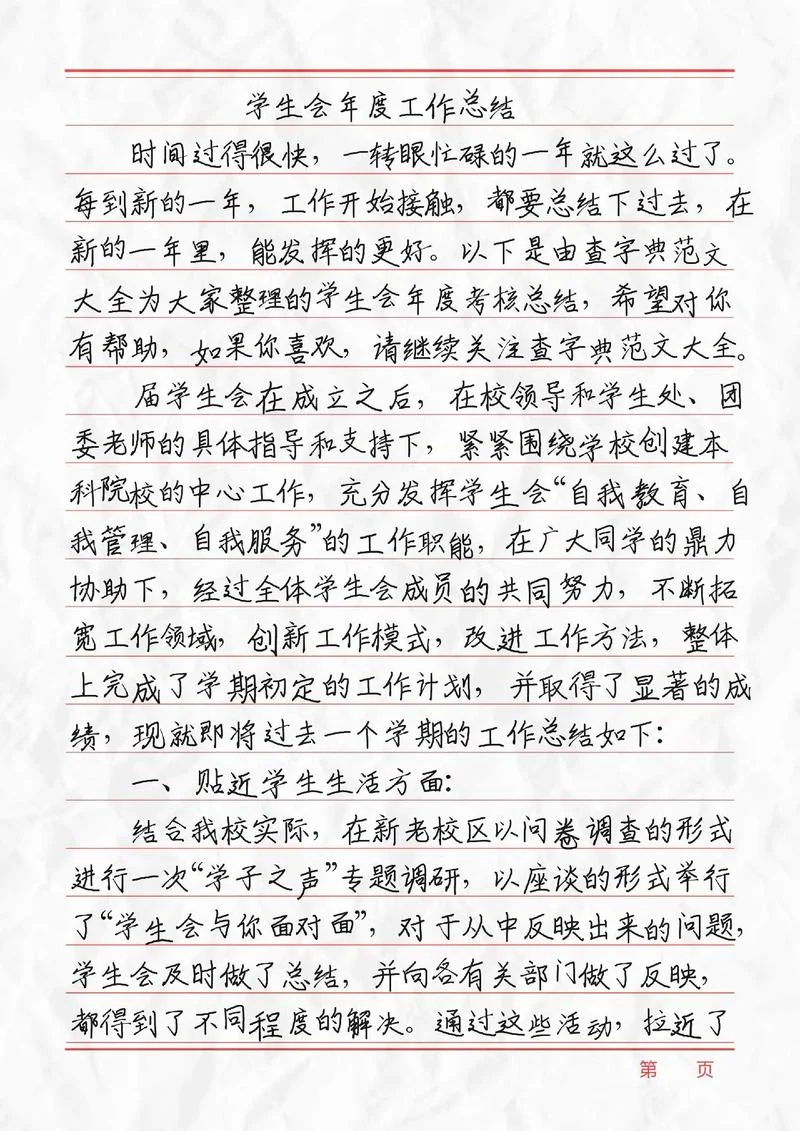 学生会年度工作总结
时间过得很快，一转眼忙碌的一年就这么过了。
每到新的一年，工作开始接触，都要总结下过去，在
新的一年里，能发挥的更好。以下是由查字典范文
大全为大家整理的学生会年度考核总结，希望对你
有帮助，如果你喜欢，请继续关注查字典范文大全。
届学生会在成立之后，在校领导和学生处、团
委老师的具体指导和支持下，紧紧围绕学校创建本
科院校的中心工作，充分发挥学生会“自我教育、自
我管理、自我服务”的工作职能，在广大同学的鼎力
协助下，经过全体学生会成员的共同努力，不断拓
宽工作领域，创新工作模式，改进工作方法，整体
上完成了学期初定的工作计划，并取得了显著的成
绩，现就即将过去一个学期的工作总结如下：
一、贴近学生生活方面：
结合我校实际，在新老校区以问卷调查的形式
进行一次“学子之声”专题调研，以座谈的形式举行
了“学生会与你面对面”，对于从中反映出来的问题，
学生会及时做了总结，并向各有关部门做了反映，
都得到了不同程度的解决。通过这些活动，拉近了
第 页